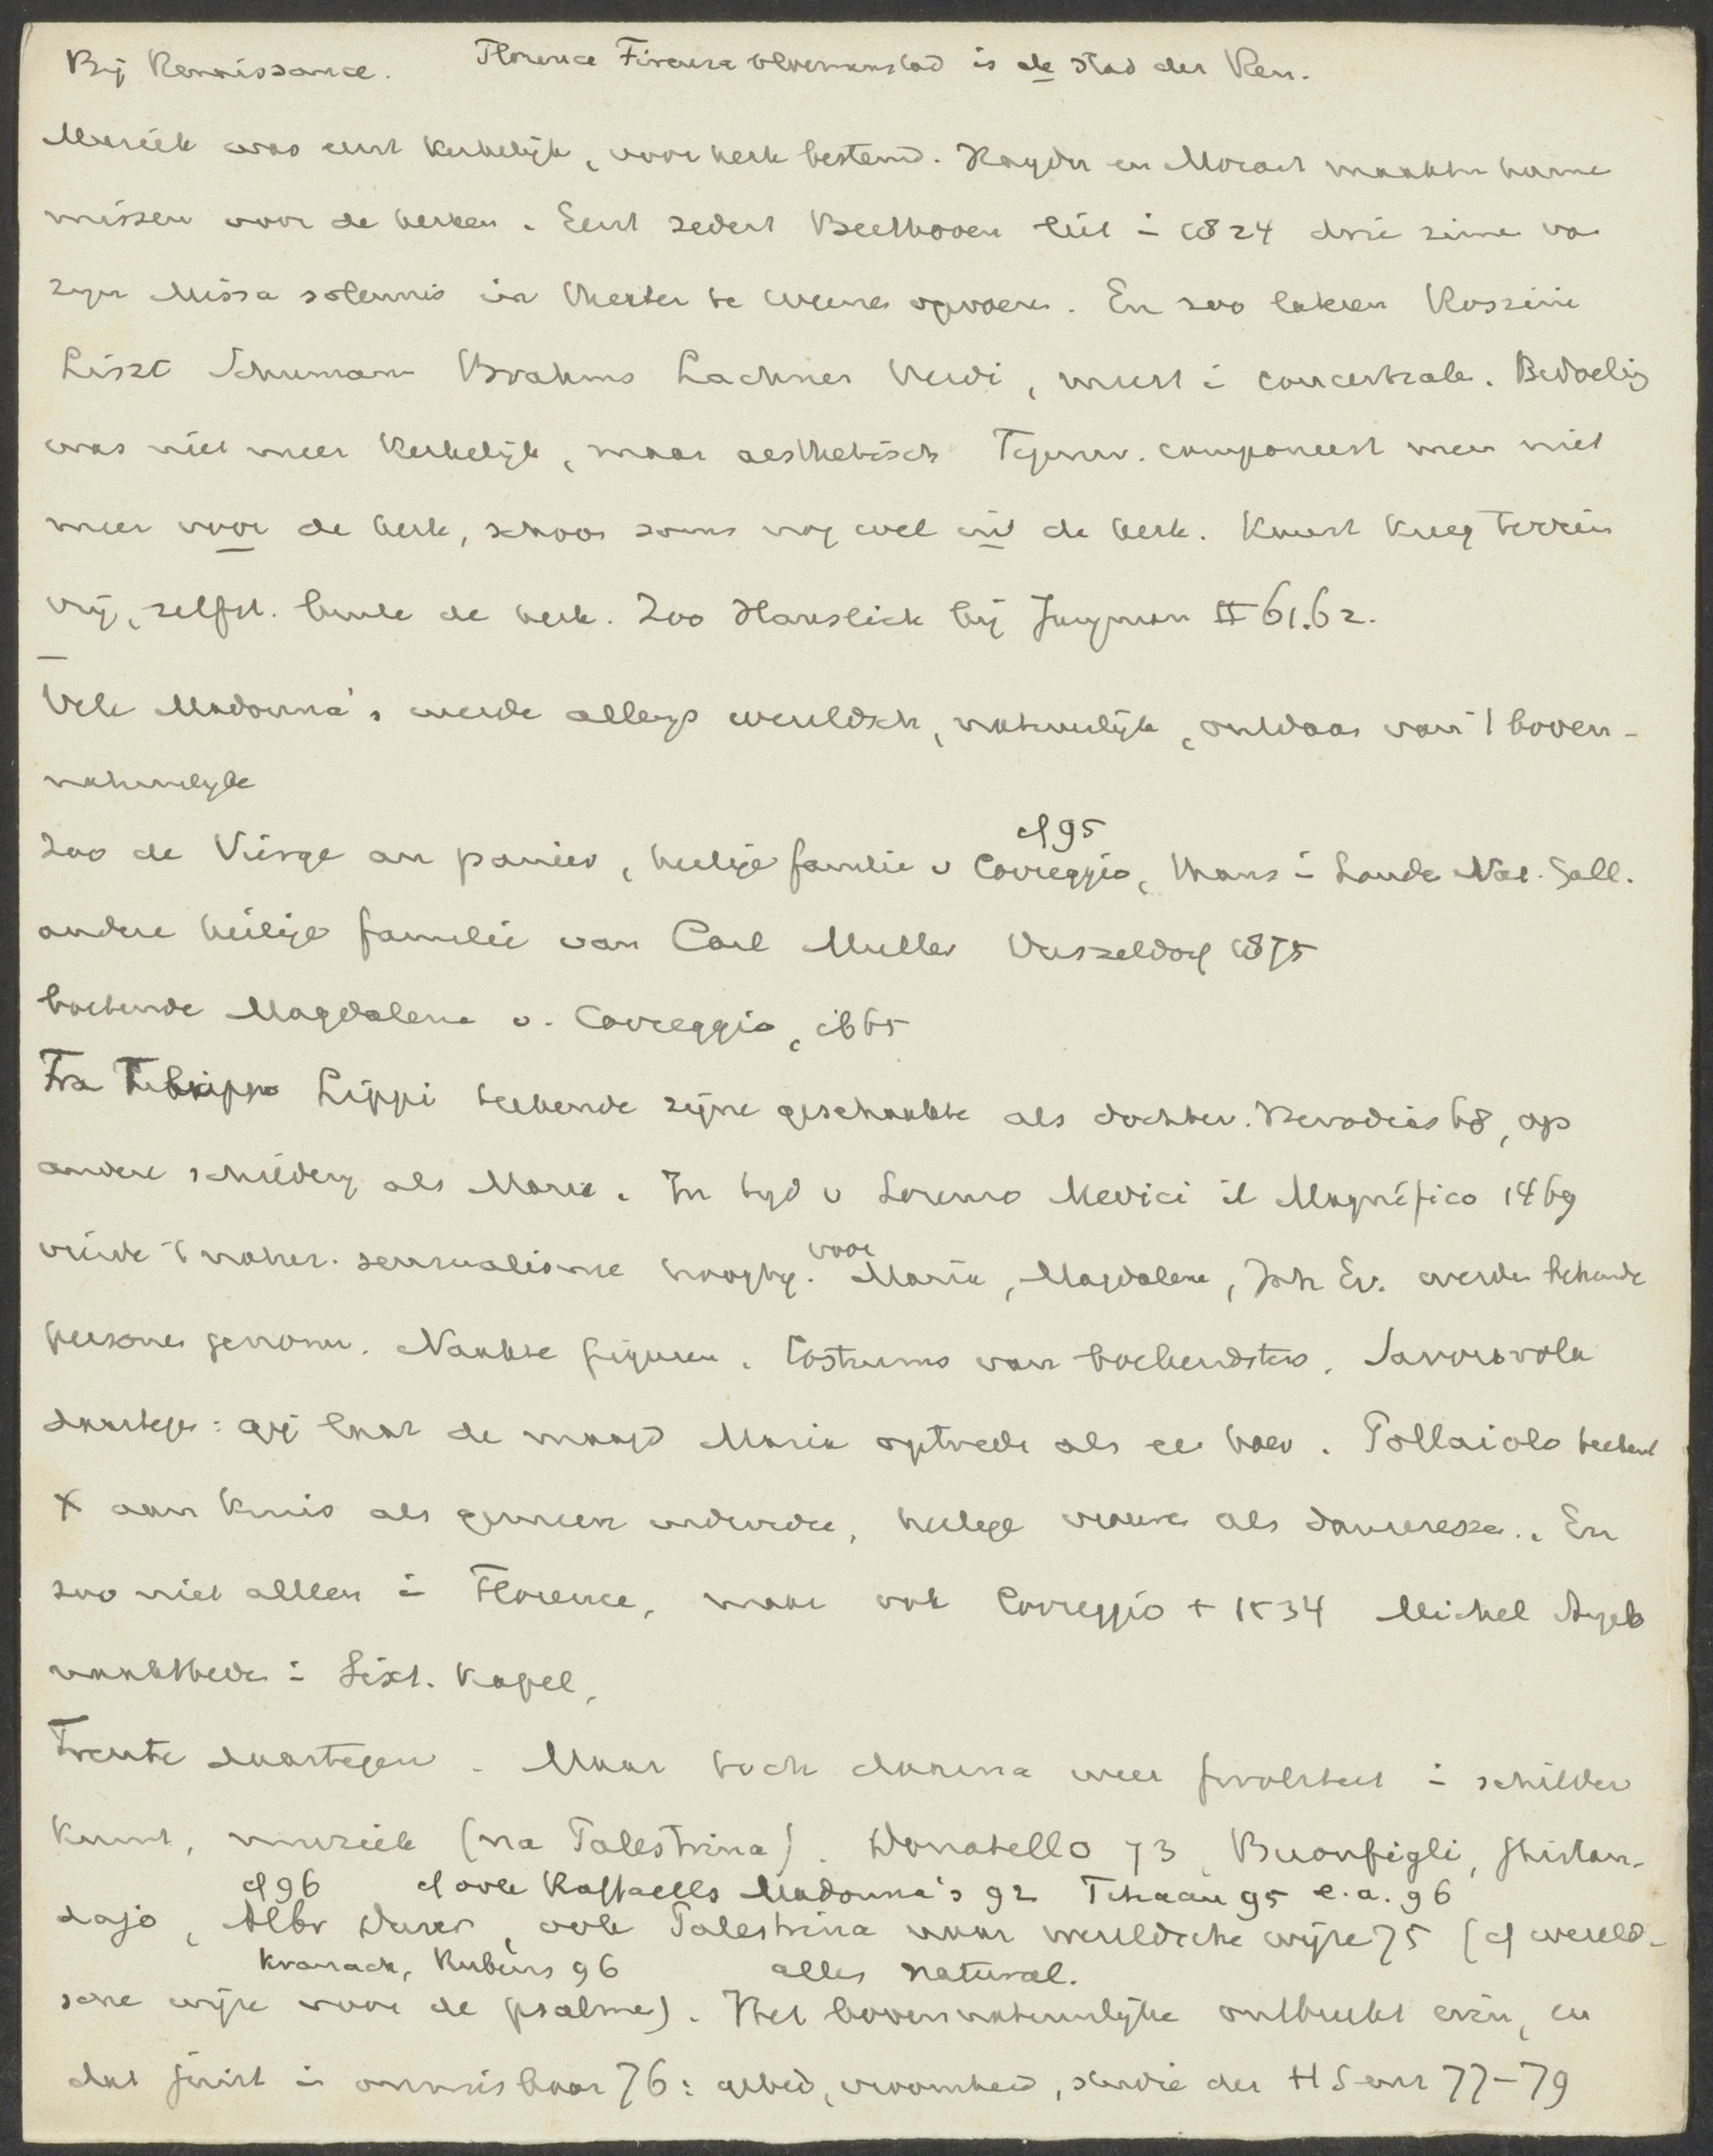 Bij Renaissance. Florence Firenze bloemenstad is de stad der Ren.
Muziek was eerst kerkelijk, voor kerk bestemd. Haydn en Mozart maakten hunne
missen voor de kerken. Eerst sedert Beethoven liet in 1824 drie zinnen van
zijn Missa solemnis in theater te Weenen opvoeren. En zoo lieten Rossini
Liszt Schumann Brahms Lachner Verdi, meest in concertzalen. Bedoeling
was niet meer kerkelijk, maar aesthetisch Tegenw. componeert men niet
meer voor de kerk, schoon soms nog wel in de kerk. Kunst kreeg terrein
vrij, zelfst. buiten de kerk. Zoo Hanslick bij Jungmann II 61.62.
Vele Madonna's werden allengs wereldsch, natuurlijk, ontdaan van 't boven-
natuurlijke
cf 95
Zoo de Vierge au panier, heilige familie v Correggio, thans in Londen Nat. Gall.
andere heilige familie van Carl Muller Dusseldorf 1875
boetende Magdalena v. Correggio, ib 65
Fra Filippo Lippi teekende zijne geschaakte als dochter. Herodias 68, op
andere schilderij als Maria. In tijd v Lorenzo Medici il Magnifico 1469
vierde 't natur. sensualisme hoogtij. voor Maria, Magdalena, Joh Ev. werden bekende
personen genomen. Naakte figuren. Costuums van boelendsters. Savonarola
daartegen: gij laat de maagd Maria optreden als een hoer. Pollaiolo teekent
X aan kruis als gemeen, heilige vrouwen als danseressen. En
zoo niet alleen in Florence, maar ook Correggio + 1534 Michel Angelo
naaktheden in Sixt. kapel,
Trente daartegen. Maar toch daarna weer in schilder
kunst, muziek (na Palestrina). Donatello 73, Buonfigli, Ghirlan-
cf 96 cf ook Raffaells Madonna's 92 Titiaan 95 e.a. 96
dajo, Albr Durer, ook Palestrina naar wereldsche wijze 75 (cf wereld-
Kranach, Rubens 96 alles natural.
sche wijze voor de psalmen). Het bovennatuurlijke ontbreekt erin, en
dat juist is onmisbaar 76: gebed, vroomheid, studie der HS enz 77-79